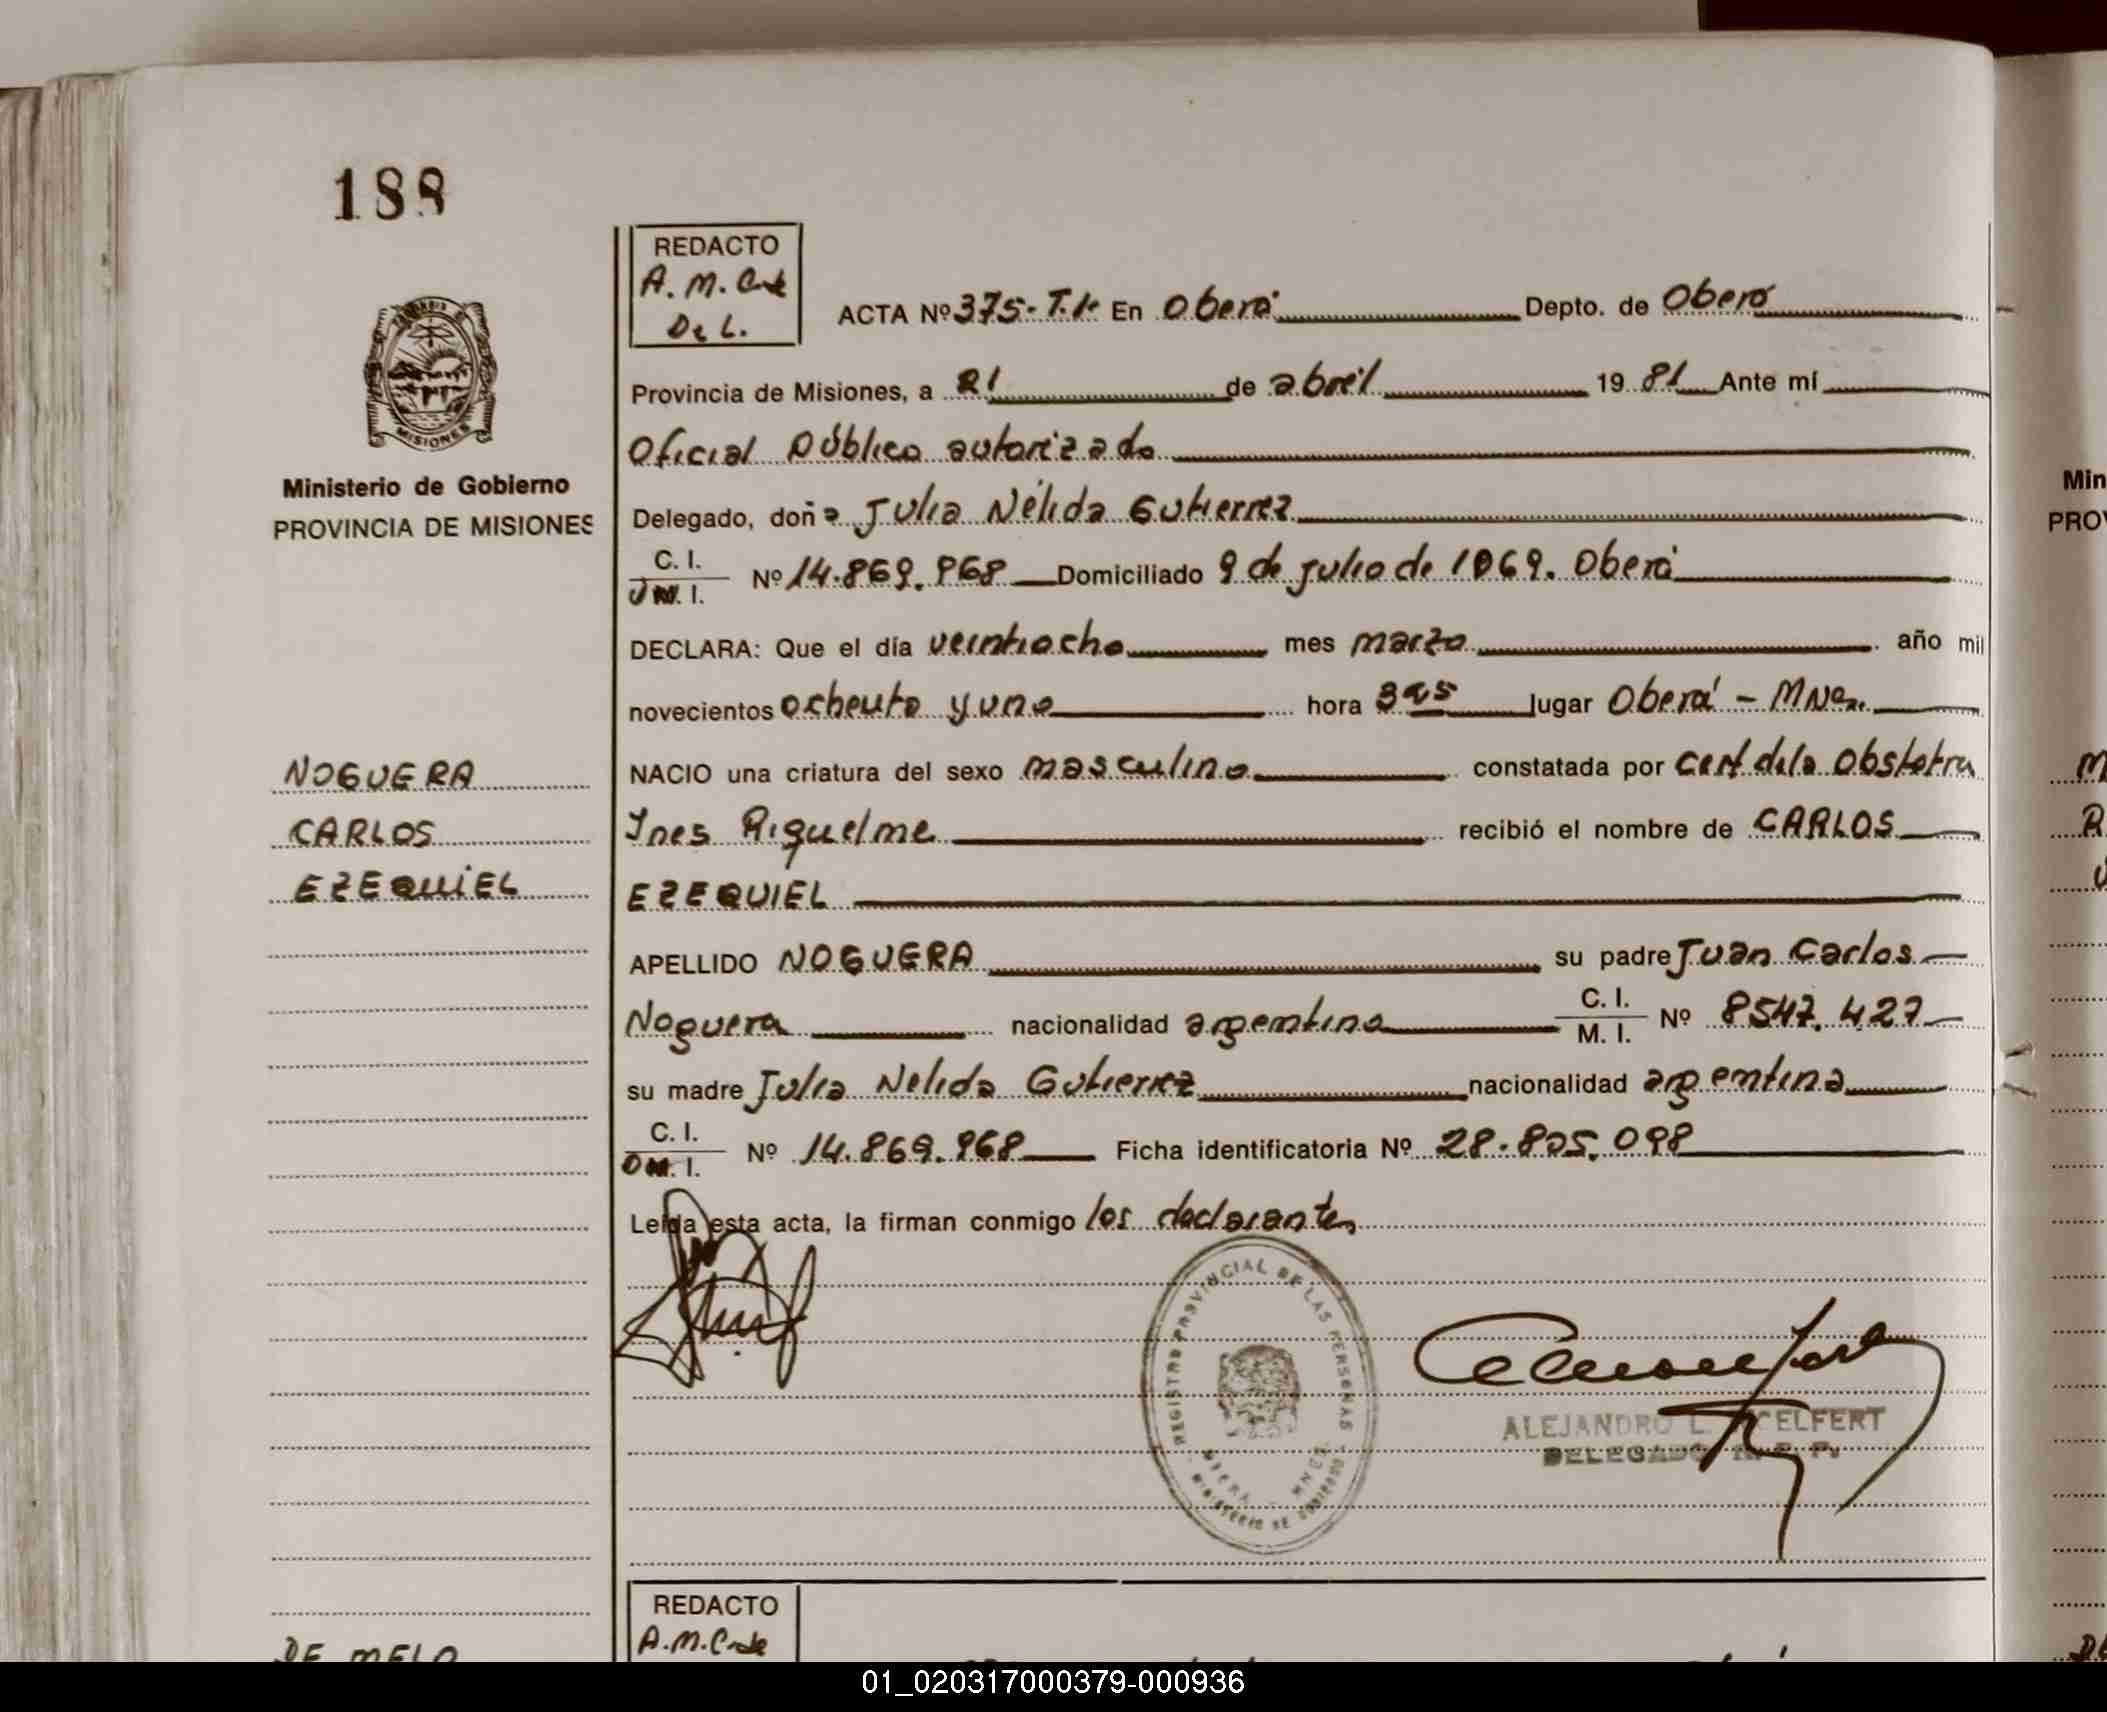 188
REDACTO
A. M. C de
De L.
ACTA Nº 375- T.I. En Oberá Depto. de Oberá
Provincia de Misiones, a 21 de abril 19 81 Ante mí
Oficial Público autorizado
MISIONES
Ministerio de Gobierno
PROVINCIA DE MISIONES
Delegado, doña Julia Nélida Gutierrez
C. I.
M. I.
Nº 14.869.968 Domiciliado 9 de julio de 1069. Oberá
DECLARA: Que el día veintiocho mes marzo año mil
novecientos ochenta y uno hora 3 lugar Oberá - Mnes.
NOGUERA
CARLOS
EZEQUIEL
NACIO una criatura del sexo masculino constatada por cert. de la Obstetra
Ines Riquelme recibió el nombre de CARLOS
EZEQUIEL
APELLIDO NOGUERA su padre Juan Carlos
Noguera nacionalidad argentina C. I. M. I. Nº 8547.427
su madre Julia Nelida Gutierrez nacionalidad argentina
C. I.
M. I.
Nº 14.869.968 Ficha identificatoria Nº 28.805.098
Leída esta acta, la firman conmigo los declarantes
REGISTRO PROVINCIAL DE LAS PERSONAS
MINISTERIO DE GOBIERNO
ALEJANDRO L. CELFERT
DELEGADO R. P. P.
REDACTO
A.M.C de
DE MELO
Min
PROV
01_020317000379-000936